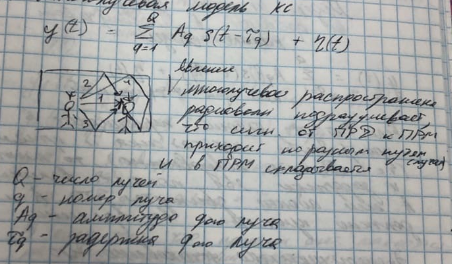 модель КС
y(t) = Σ Q q=1 Aq s(t - τq) + η(t)
Явление
многолучевая распространение
радиоволн подразумевает,
что сигн от ПРД к ПРМ
приходит по разным путям
и в ПРМ складывается
2
1
3
Q - число лучей
q - номер луча
Aq - амплитуда qого луча
τq - задержка qого луча